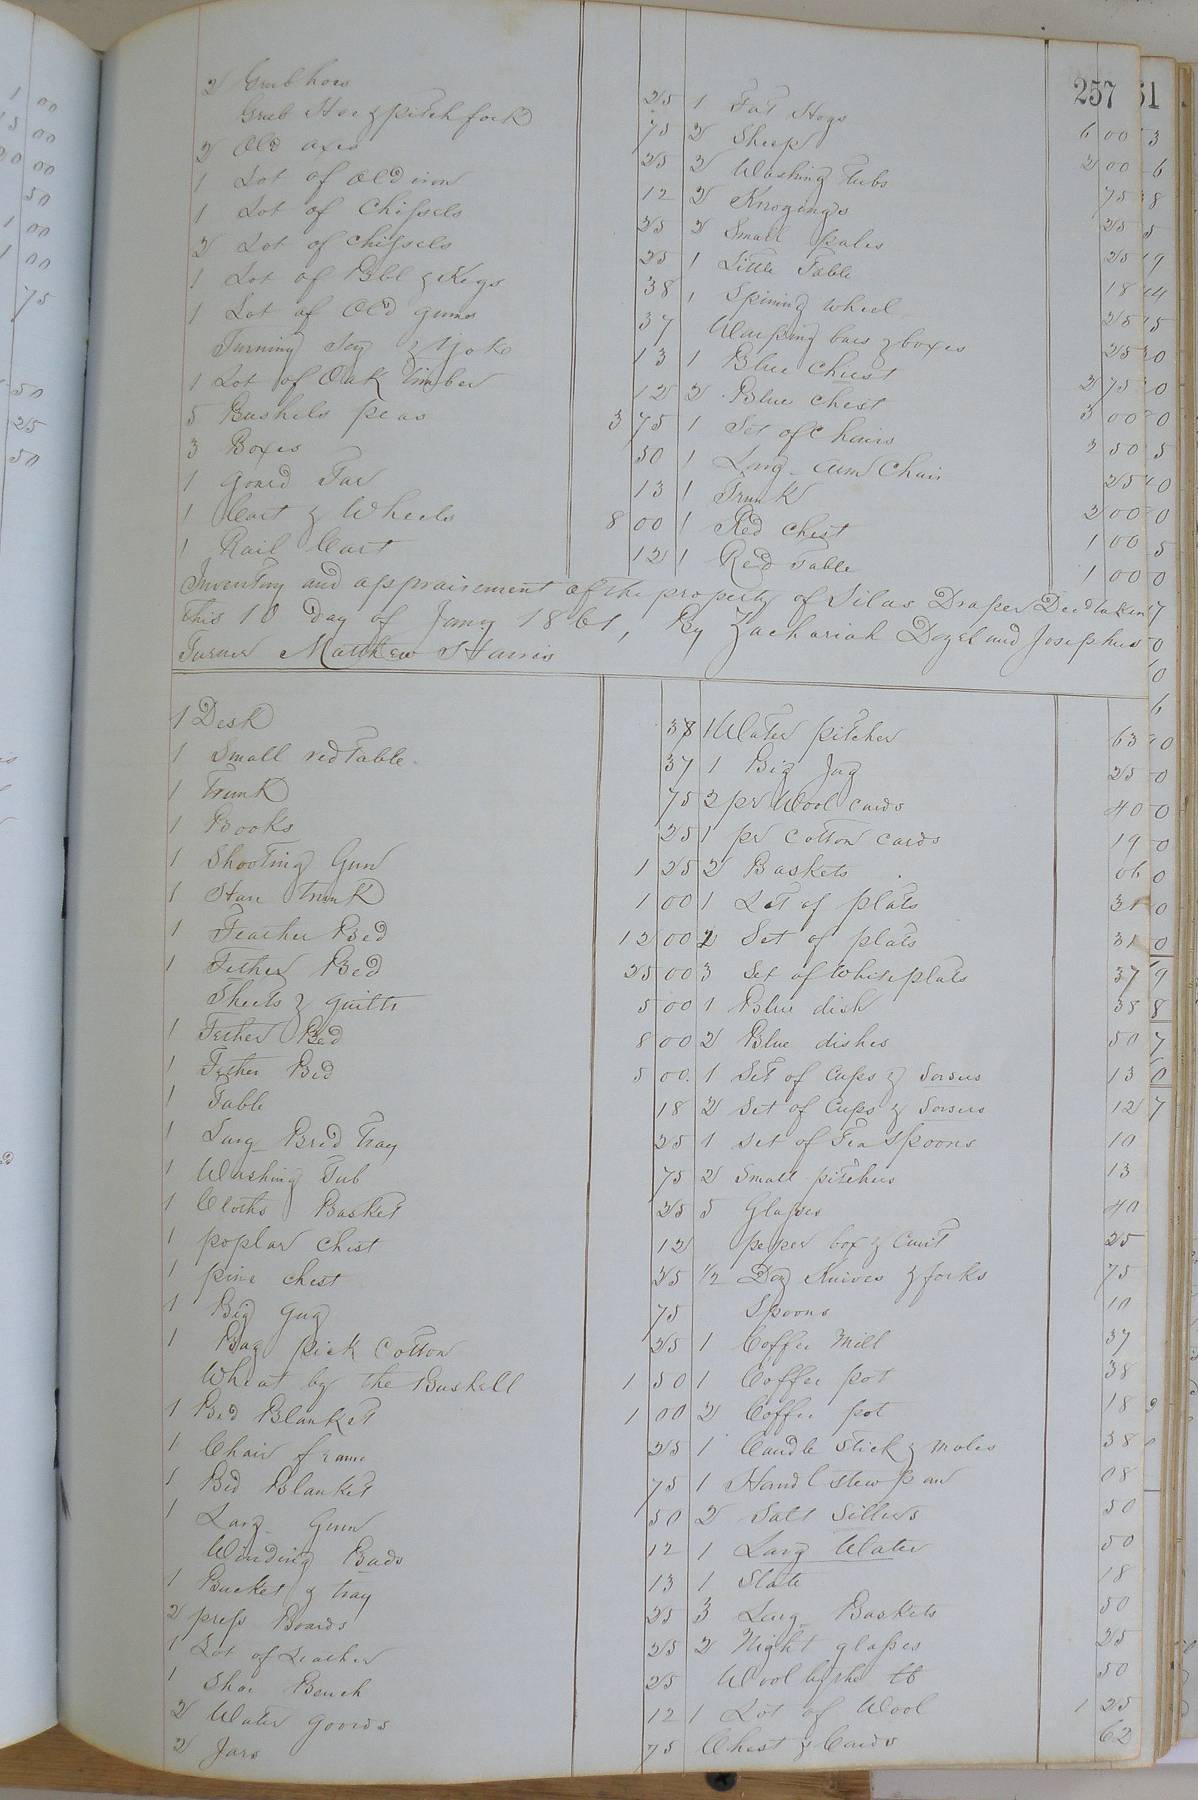 257
2 Grub hoes 25
Grub Hoe & pitch fork 75
2 Old axes 25
1 Lot of Old iron 12
1 Lot of Chissels 25
2 Lot of Chissels 25
1 Lot of Bbl & Kegs 38
1 Lot of Old gums 37
Turning & Yoke 13
1 Lot of Oak Timber 12
5 Bushels peas 3 75
3 Boxes 50
1 gourd Tar 13
1 Cart & Wheels 8 00
1 Rail Cart 12
1 Fat Hogs 6 00
2 Sheep 2 00
2 Washing Tubs 75
2 25
2 Small pales 25
1 Little Table 18
1 Spining wheel 25
Warping bars & boxes 25
1 Blue chest 2 75
2 Blue chest 3 00
1 Set of Chairs 2 50
1 Larg arm Chair 25
1 Trunk 2 00
1 Red chest 1 00
1 Red Table 1 00
Inventory and appraisement of the property of Silas Draper Decd taken
this 10 Day of Jany 1861, By Zachariah Dozel and Josephus
Turner Matthew Harris
1 Desk 38
1 Small red Table 37
1 Trunk 75
1 Books 25
1 Shooting Gun 1 25
1 Hair trunk 1 00
1 Feather Bed 12 00
1 Fether Bed 25 00
Sheets & quilts 5 00
1 Fether Bed 8 00
1 Fether Bed 5 00
1 Table 18
1 Larg Bred Tray 25
1 Washing Tub 75
1 Cloths Basket 25
1 poplar chest 12
1 pine chest 25
1 Big Gug 75
1 Bag pick cotton 25
Wheat by the Bushell 1 50
1 Bed Blanket 1 00
1 Chair frame 25
1 Bed Blanket 75
1 Larg Gun 50
Winding Bads 12
1 Bucket & tray 13
2 press Boards 25
1 Lot of Leather 25
1 Shoe Bench 25
2 Water goords 12
2 Jars 75
1 Water pitcher 63
1 Big Jug 25
2 pr Wool cards 40
1 pr cotton cards 19
2 Baskets 06
1 Set of plats 31
2 Set of plats 31
3 Set of White plats 37
1 Blue dish 38
2 Blue dishes 50
1 Set of Cups & Sorsers 13
2 Set of Cups & Sorsers 12
1 set of Tea Spoons 10
2 Small pitchers 13
5 Glasses 40
peper box & Cruit 25
1/2 Doz Knives & forks 75
Spoons 10
1 Coffee Mill 37
1 Coffee pot 38
2 Coffee pot 18
1 Candle stick & moles 38
1 Handl stew pan 08
2 Salt Sillers 50
1 Larg Water 50
1 Slate 18
3 Larg Baskets 50
2 Night glasses 25
Wool by the lb 50
1 Lot of Wool 1 25
Chest & Cards 62